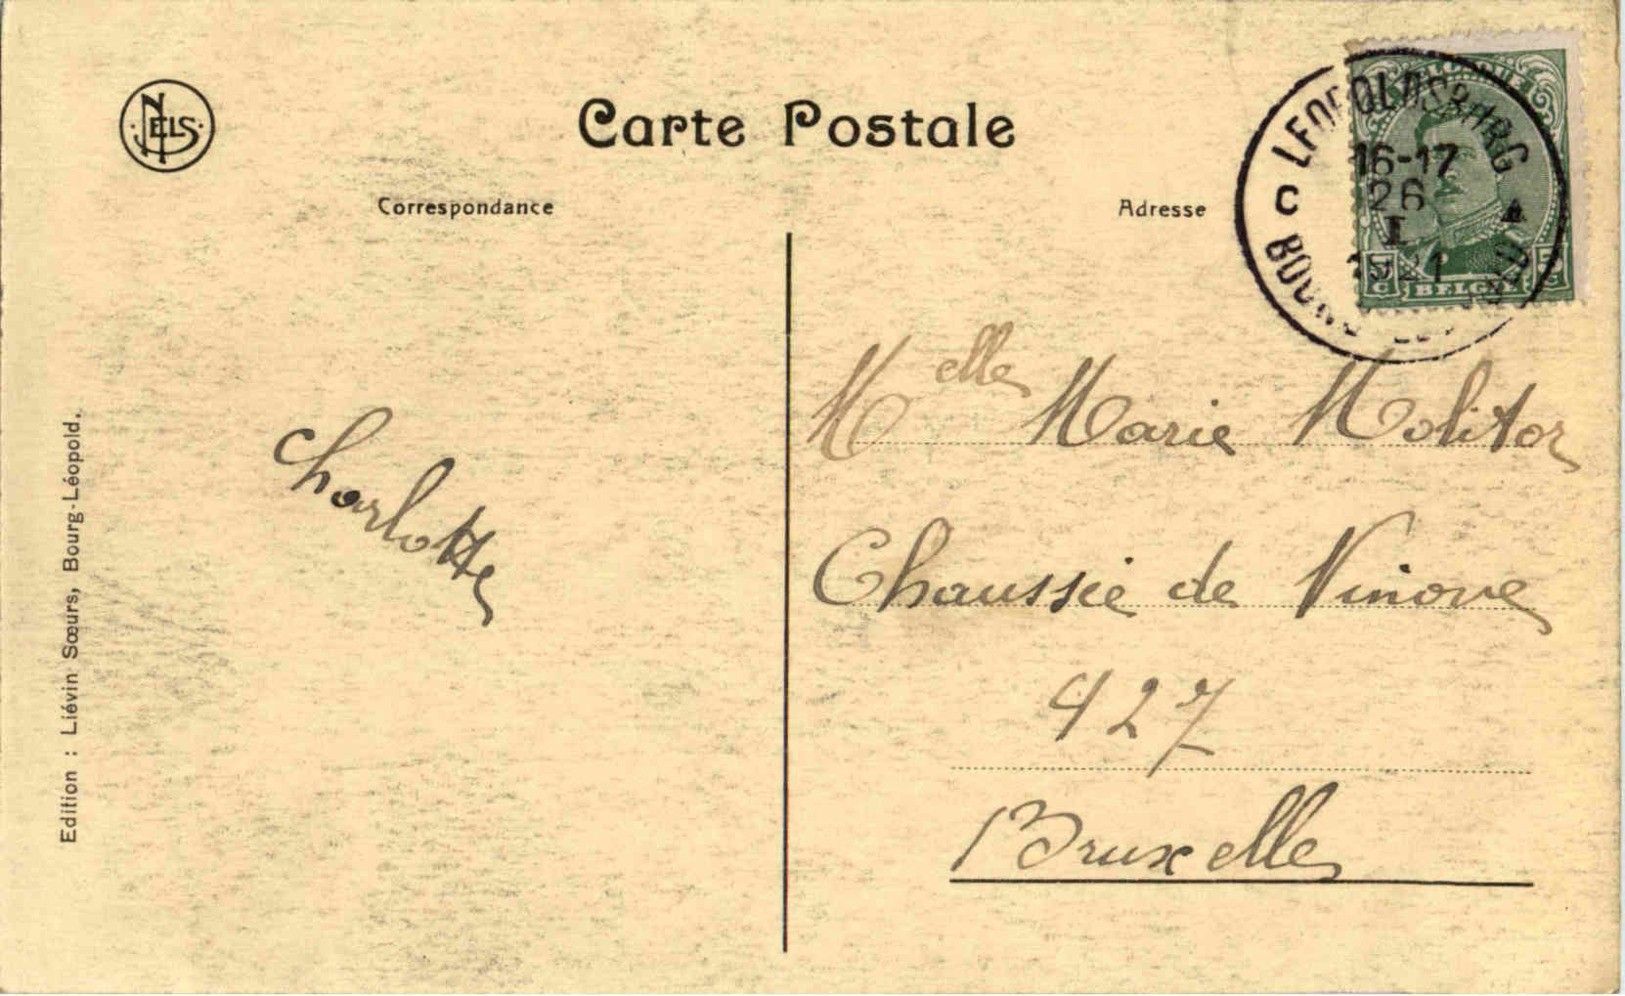 NELS
Carte Postale
Correspondance
Adresse
BELGIQUE
LEOPOLDSBURG
16-17
C 26 A
I
1921
BOURG-LEOPOLD
5 5
C BELGIE C
Melle Marie Molitor
Chaussée de Ninove
427
Bruxelles
Charlotte
Edition : Liévin Sœurs, Bourg-Léopold.